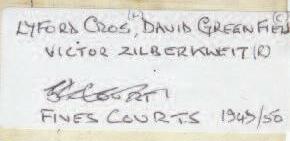 LYFORD CROS, (L) DAVID GREENFIEL (C)
VICTOR ZILBERKWEIT (R)
FINES COURTS 1949/50